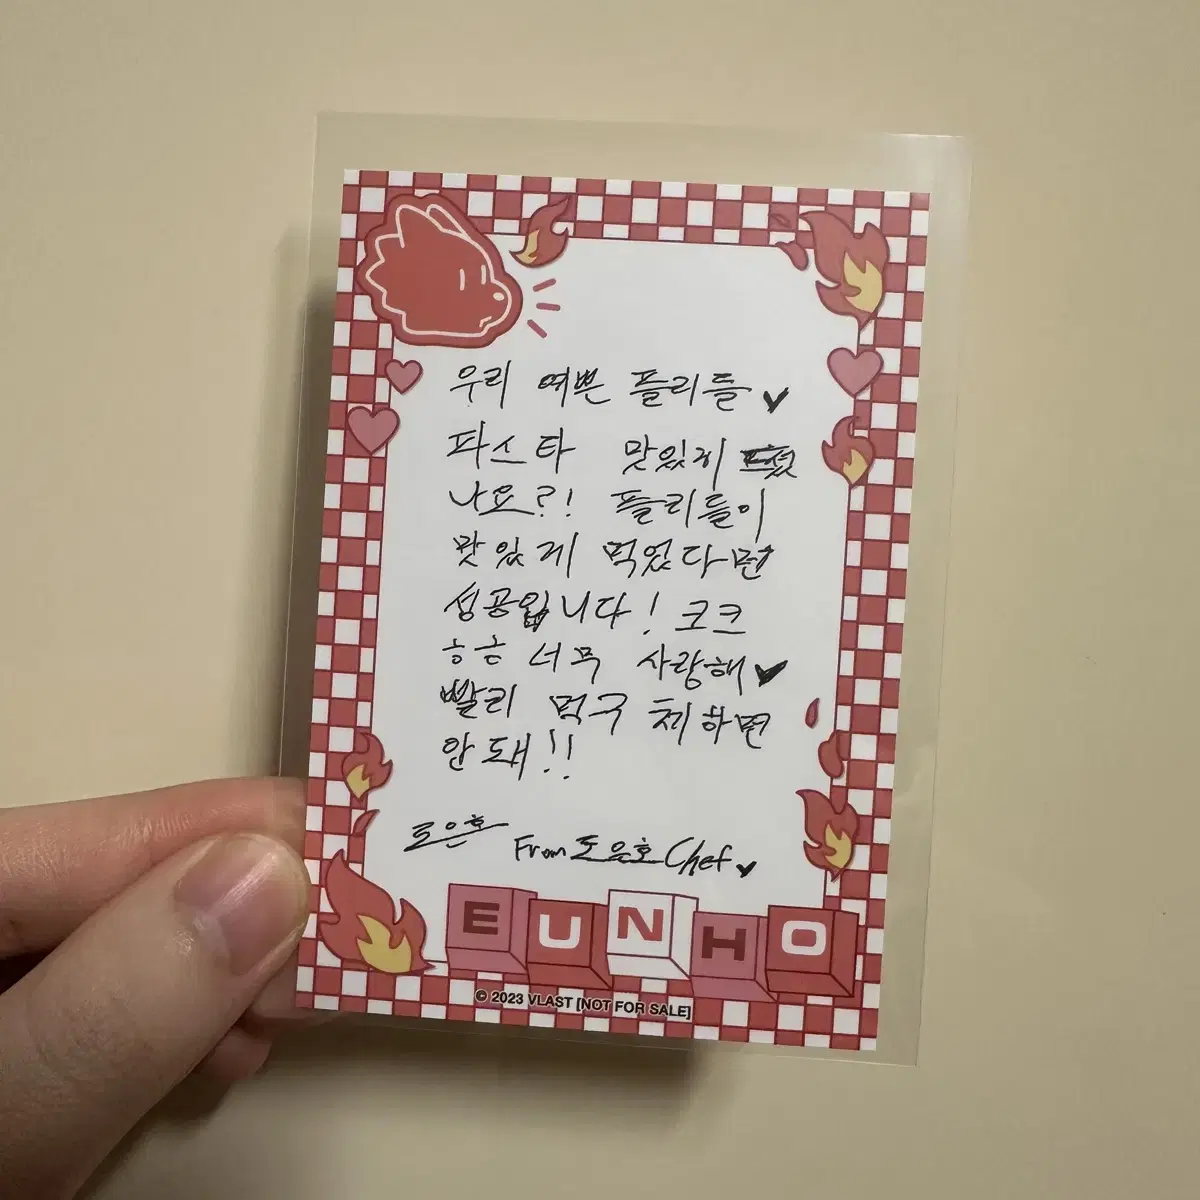 우리 예쁜 플리들♥
파스타 맛있게 드셨
나요?! 플리들이
맛있게 먹었다면
성공입니다! 코크
ㅎㅎ 너무 사랑해♥
빨리 먹구 체하면
안돼!!
도은호
From 도은호 Chef♥
EUNHO
© 2023 VLAST [NOT FOR SALE]